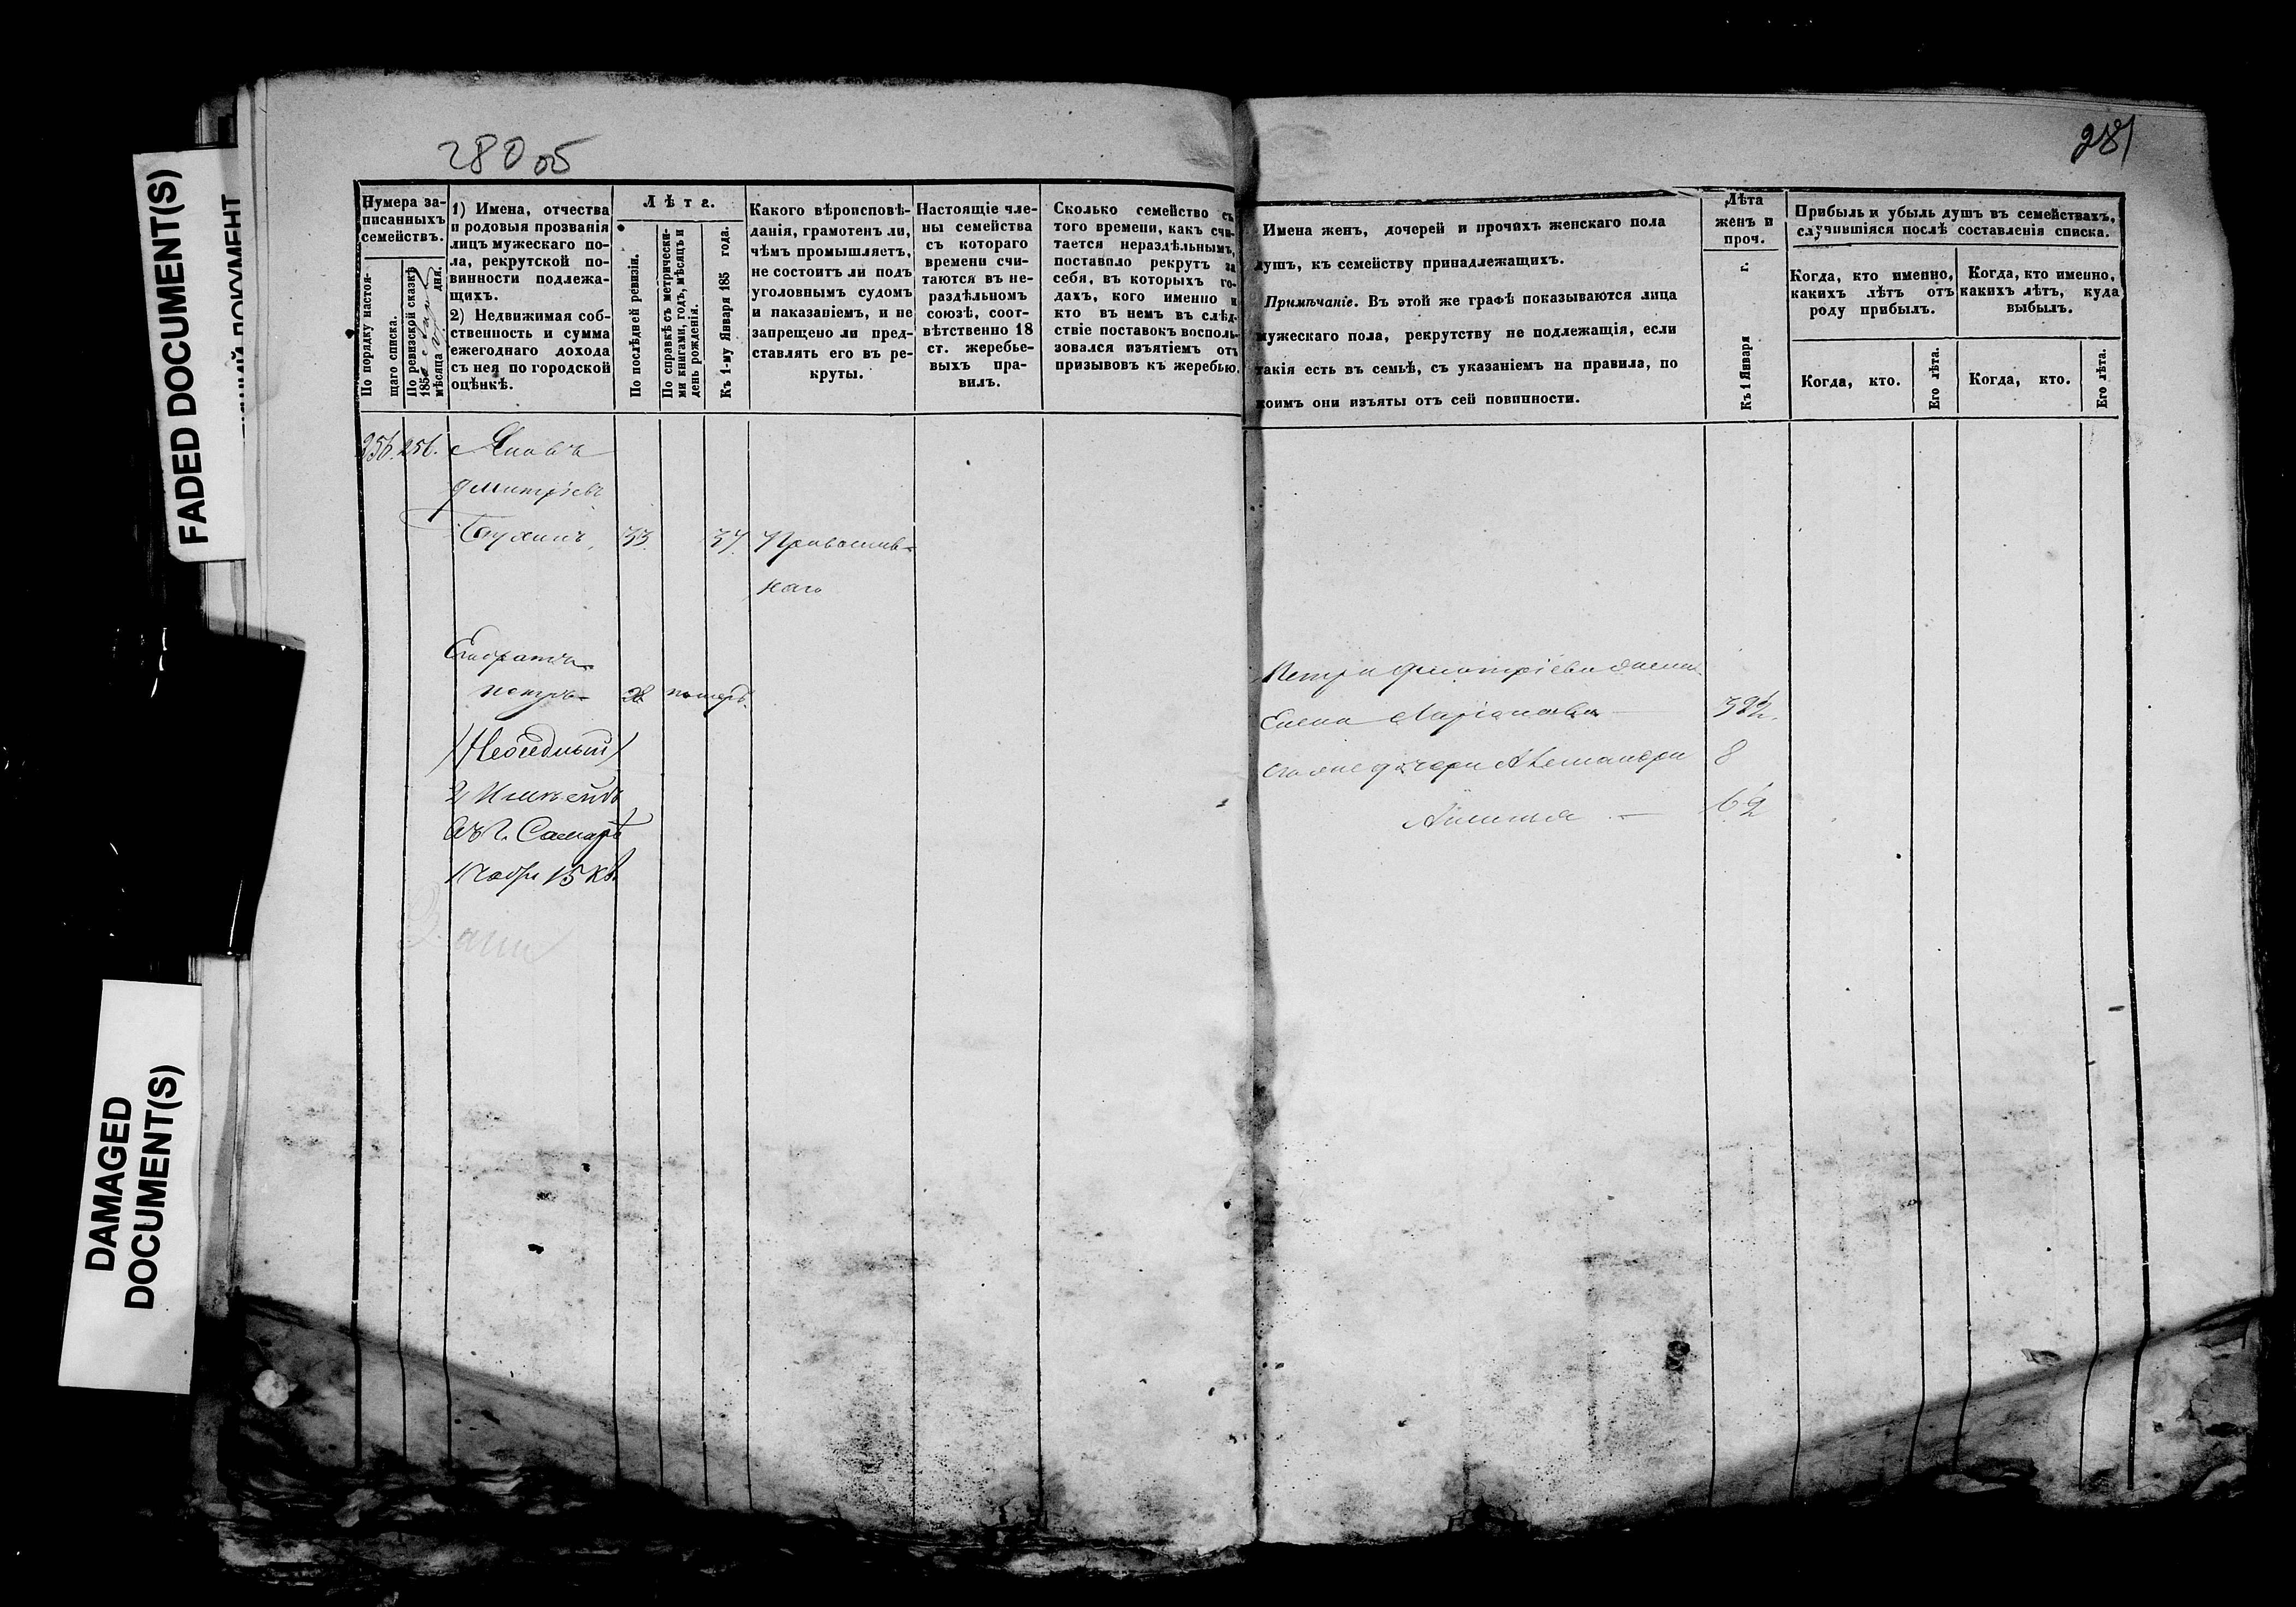 FADED DOCUMENT(S)
DAMAGED
DOCUMENT(S)
280 об
Нумера за-
писанныхъ
семействъ.
По порядку настоя-
щаго списка.
По ревизской сказкѣ
185
мѣсяца дня.
1) Имена, отчества
и родовыя прозванія
лицъ мужескаго по-
ла, рекрутской по-
винности подлежа-
щихъ.
2) Недвижимая соб-
ственность и сумма
ежегоднаго дохода
съ нея по городской
оцѣнкѣ.
Лѣта.
По послѣдней ревизіи.
По справкѣ съ метрически-
ми книгами, годъ, мѣсяцъ и
день рожденія.
Къ 1-му Января 185 года.
Какого вѣроисповѣ-
данія, грамотенъ ли,
чѣмъ промышляетъ,
не состоитъ ли подъ
уголовнымъ судомъ
и наказаніемъ, и не
запрещено ли пред-
ставлять его въ ре-
круты.
Настоящіе чле-
ны семейства
съ котораго
времени счи-
таются въ не-
раздѣльномъ
союзѣ, соот-
вѣтственно 18
ст. жеребье-
выхъ пра-
вилъ.
Сколько семейство съ
того времени, какъ счи-
тается нераздѣльнымъ,
поставило рекрутъ за
себя, въ которыхъ го-
дахъ, кого именно и
кто въ немъ въ слѣд-
ствіе поставокъ восполь-
зовался изъятіемъ отъ
призывовъ къ жеребью.
256. 256. Яковъ
Дмитріевъ
33. 37. Православ-
наго
Егo братъ
Петръ 28 померъ.
Въ г. Самарѣ
281
Имена женъ, дочерей и прочихъ женскаго пола
душъ, къ семейству принадлежащихъ.
Примѣчаніе. Въ этой же графѣ показываются лица
мужескаго пола, рекрутству не подлежащія, если
такія есть въ семьѣ, съ указаніемъ на правила, по
коимъ они изъяты отъ сей повинности.
Лѣта
женъ и
проч.
Къ 1 Января г.
Прибыль и убыль душъ въ семействахъ,
случившіяся послѣ составленія списка.
Когда, кто именно,
какихъ лѣтъ отъ
роду прибылъ.
Когда, кто именно,
какихъ лѣтъ, куда
выбылъ.
Когда, кто.
Его лѣта.
Когда, кто.
Его лѣта.
Петра Дмитріева жена
Елена
дочери Александра 8